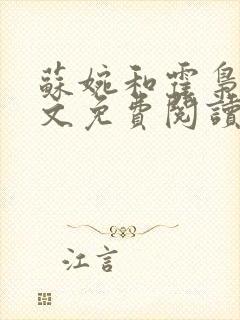 蘇婉和霍梟
文免費閱讀
江言